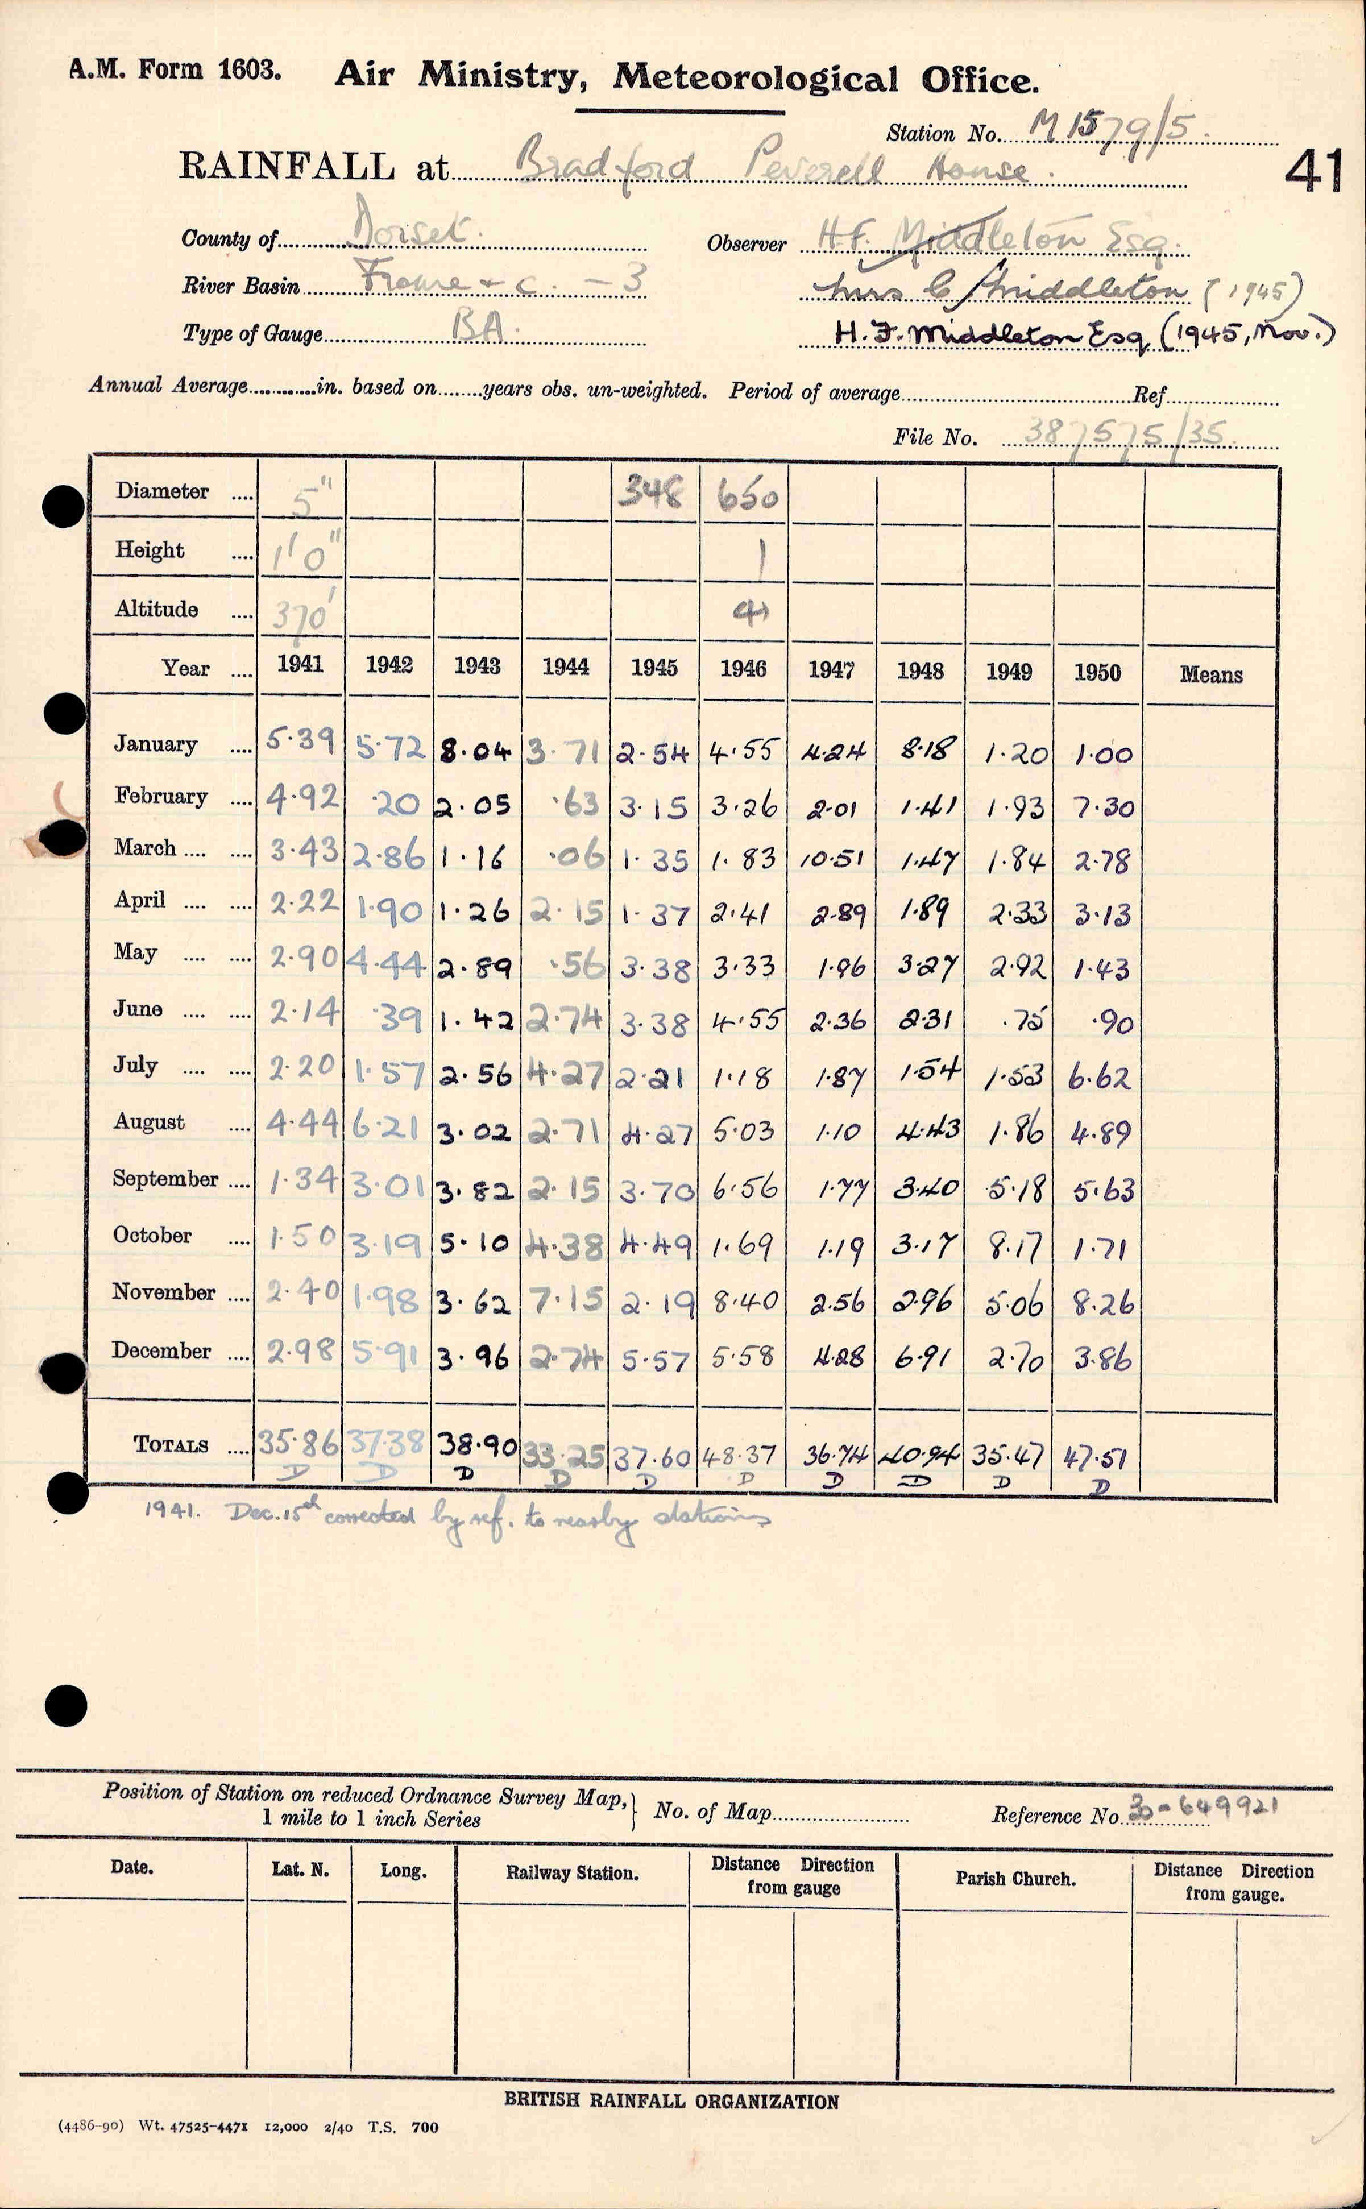 A.M. Form 1603. Air Ministry, Meteorological Office.
Station No. M 1579/5.
RAINFALL at Bradford Peverell House. 41
County of Dorset. Observer H.F. Middleton Esq.
River Basin Frome & c. - 3 Mrs C Middleton (1945)
Type of Gauge BA. H. F. Middleton Esq (1945, Nov.)
Annual Average in. based on years obs. un-weighted. Period of average Ref
File No. 387575/35
Diameter 5" 348 650
Height 1'0" 1
Altitude 370'
Year 1941 1942 1943 1944 1945 1946 1947 1948 1949 1950 Means
January 5.39 5.72 8.04 3.71 2.54 4.55 4.24 8.18 1.20 1.00
February 4.92 .20 2.05 .63 3.15 3.26 2.01 1.41 1.93 7.30
March 3.43 2.86 1.16 .06 1.35 1.83 10.51 1.47 1.84 2.78
April 2.22 1.90 1.26 2.15 1.37 2.41 2.89 1.89 2.33 3.13
May 2.90 4.44 2.89 .56 3.38 3.33 1.96 3.27 2.92 1.43
June 2.14 .39 1.42 2.74 3.38 4.55 2.36 2.31 .75 .90
July 2.20 1.57 2.56 4.27 2.21 1.18 1.87 1.54 1.53 6.62
August 4.44 6.21 3.02 2.71 4.27 5.03 1.10 4.43 1.86 4.89
September 1.34 3.01 3.82 2.15 3.70 6.56 1.77 3.40 5.18 5.63
October 1.50 3.19 5.10 4.38 4.49 1.69 1.19 3.17 8.17 1.71
November 2.40 1.98 3.62 7.15 2.19 8.40 2.56 2.96 5.06 8.26
December 2.98 5.91 3.96 2.74 5.57 5.58 4.28 6.91 2.70 3.86
TOTALS 35.86 37.38 38.90 33.25 37.60 48.37 36.74 40.94 35.47 47.51
D D D D D D D D D D
1941. Dec. 15th corrected by ref. to nearby stations
Position of Station on reduced Ordnance Survey Map, } No. of Map Reference No. 649921
1 mile to 1 inch Series
Date. Lat. N. Long. Railway Station. Distance Direction from gauge Parish Church. Distance Direction from gauge.
BRITISH RAINFALL ORGANIZATION
(4486-90) Wt. 47525-4471 12,000 2/40 T.S. 700